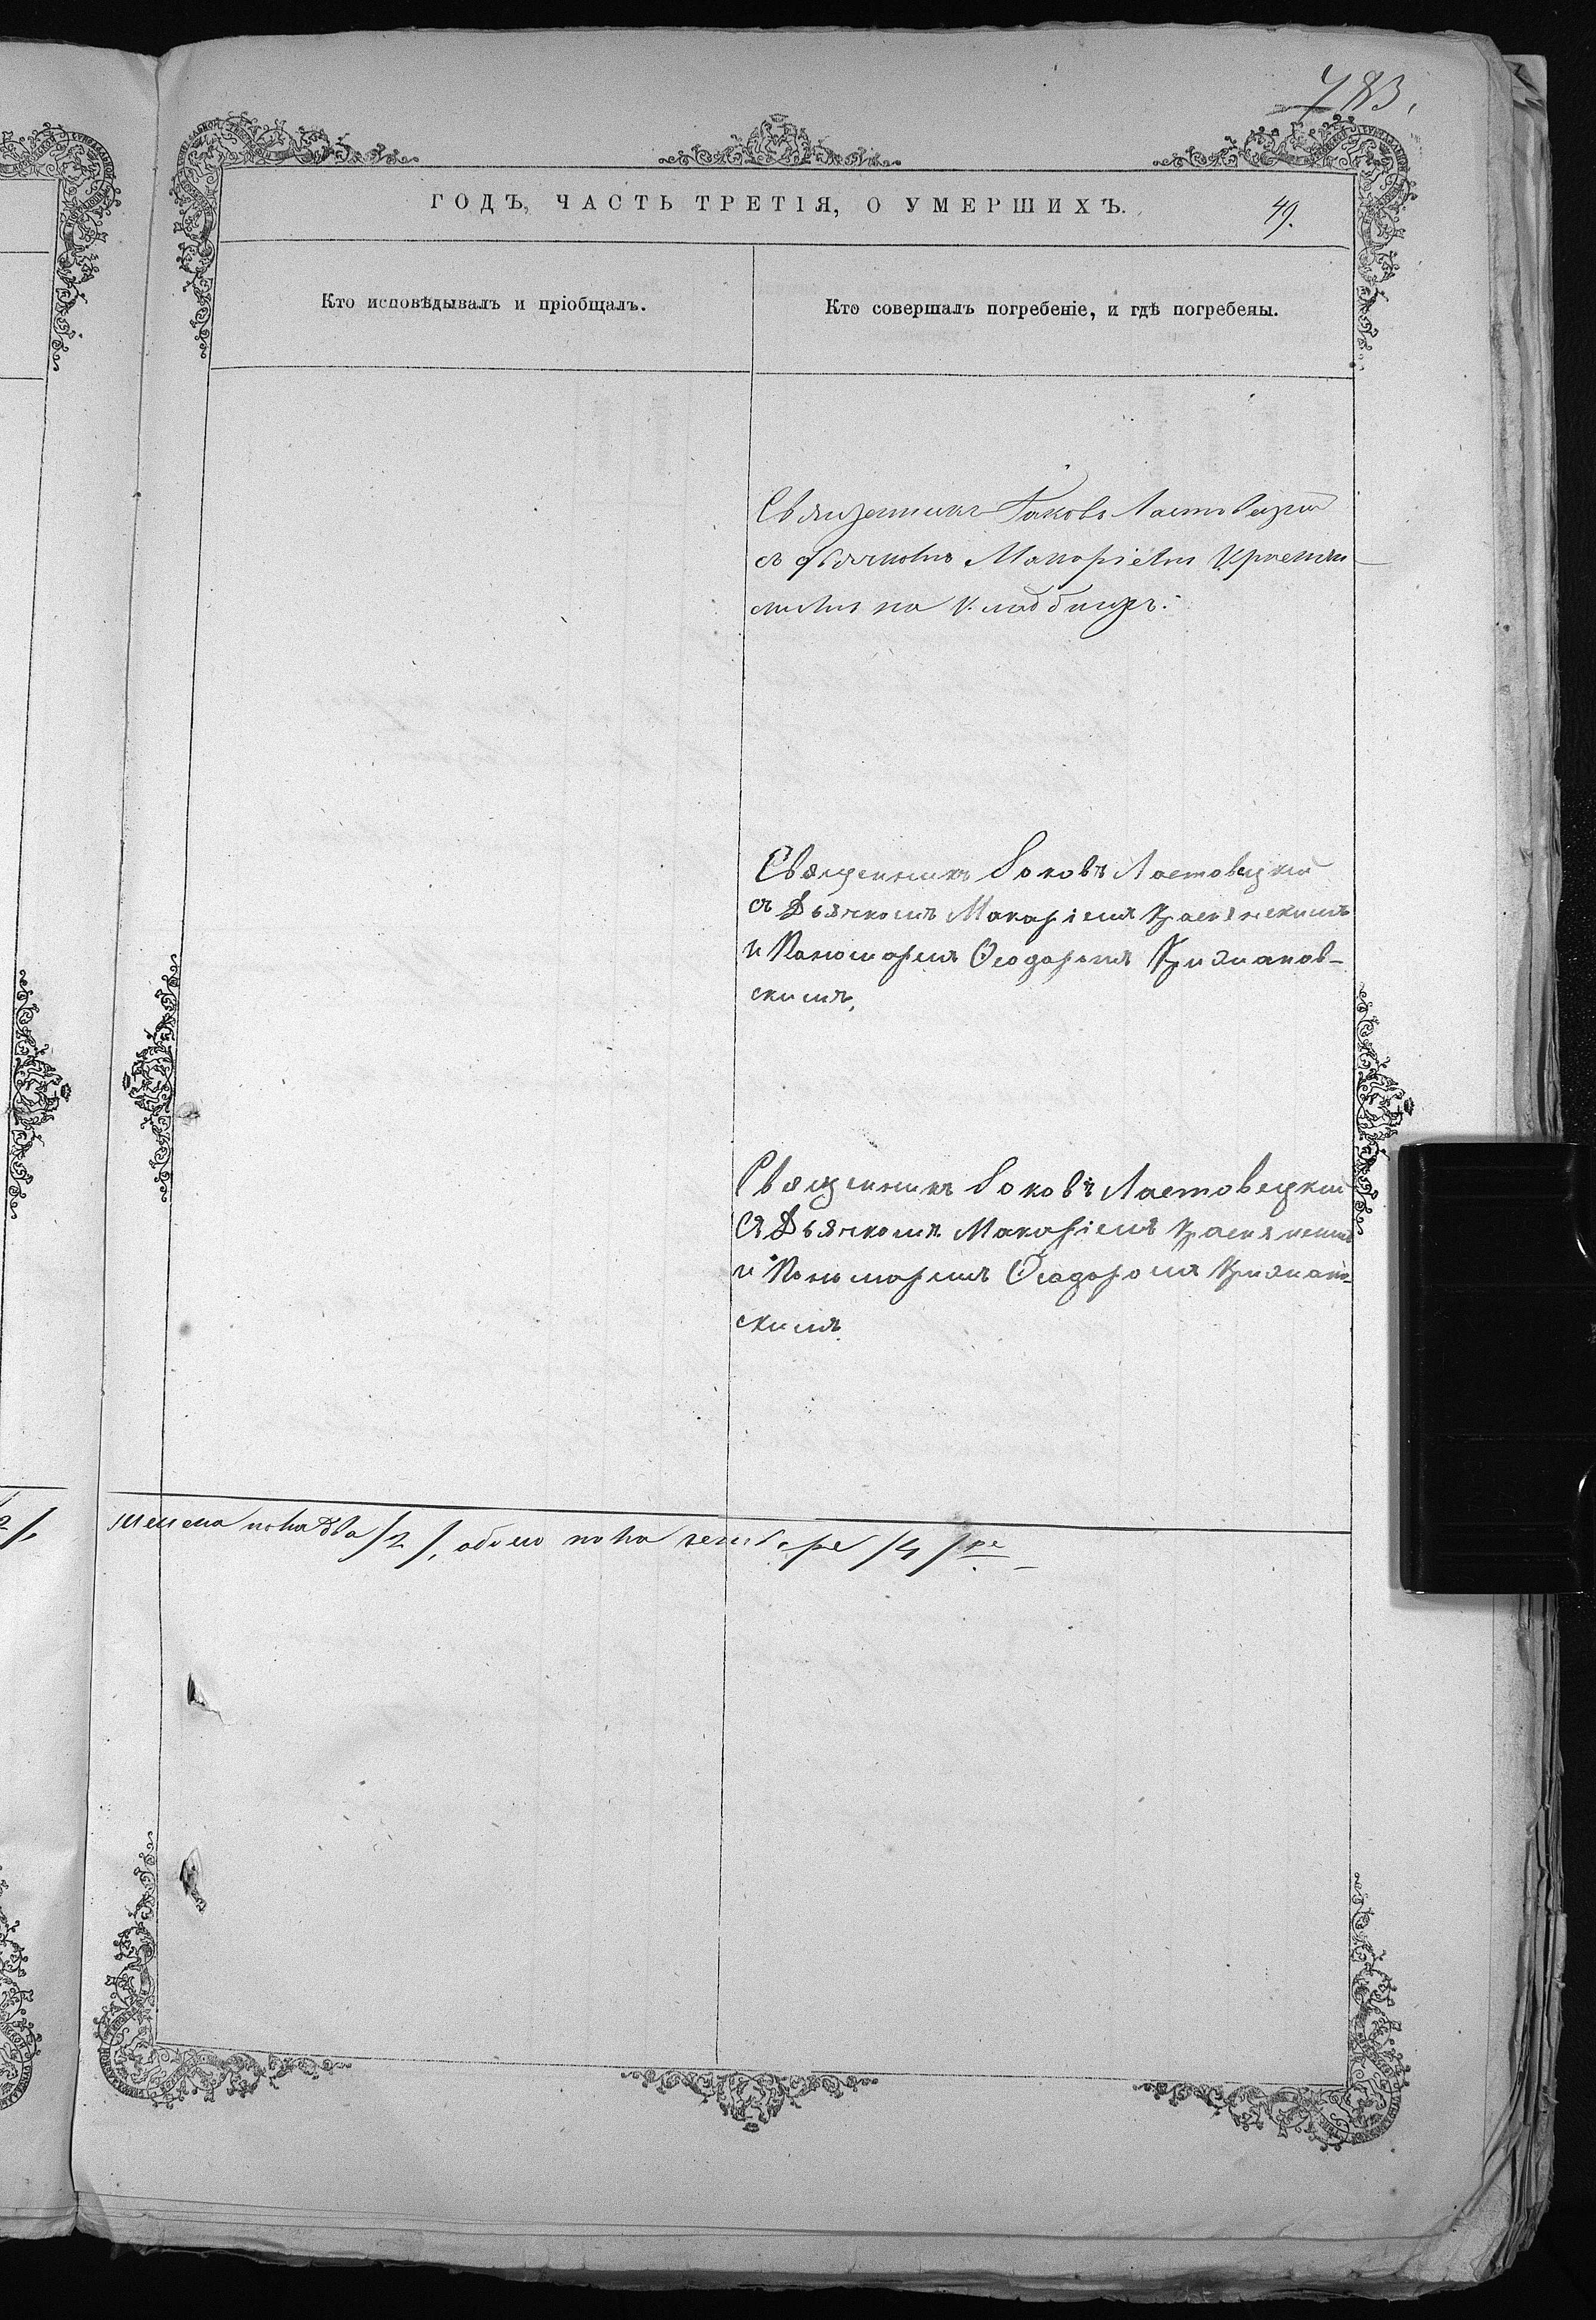 783.
ГОДЪ, ЧАСТЬ ТРЕТІЯ, О УМЕРШИХЪ.
49.
Кто исповѣдывалъ и пріобщалъ.
Кто совершалъ погребеніе, и гдѣ погребены.
Священникъ Іаковъ Ластовецкій
съ дьячкомъ Макаріемъ Краснян-
скимъ на кладбищѣ.
Священникъ Іаковъ Ластовецкий
съ Дьячкомъ Макаріемъ Краснянскимъ
и Пономаремъ Ѳеодоромъ Крижанов-
скимъ,
Священникъ Іаковъ Ластовецкий
съ Дьячкомъ Макаріемъ Краснянскимъ
и Пономаремъ Ѳеодоромъ Крижанов-
скимъ
пола два /2/, обоего пола четыре /4/ ре